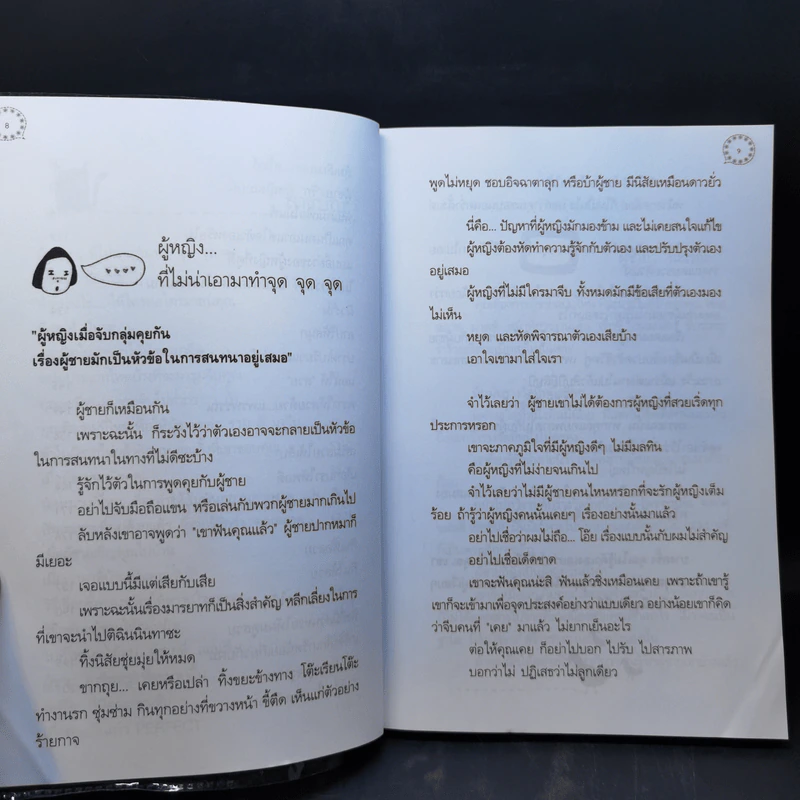 8
ผู้หญิง...
ที่ไม่น่าเอามาทำจุด จุด จุด
"ผู้หญิงเมื่อจับกลุ่มคุยกัน
เรื่องผู้ชายมักเป็นหัวข้อในการสนทนาอยู่เสมอ"
ผู้ชายก็เหมือนกัน
เพราะฉะนั้น ก็ระวังไว้ว่าตัวเองอาจจะกลายเป็นหัวข้อ
ในการสนทนาในทางที่ไม่ดีซะบ้าง
รู้จักไว้ตัวในการพูดคุยกับผู้ชาย
อย่าไปจับมือถือแขน หรือเล่นกับพวกผู้ชายมากเกินไป
ลับหลังเขาอาจพูดว่า "เขาฟันคุณแล้ว" ผู้ชายปากหมาก็
มีเยอะ
เจอแบบนี้มีแต่เสียกับเสีย
เพราะฉะนั้นเรื่องมารยาทก็เป็นสิ่งสำคัญ หลีกเลี่ยงในการ
ที่เขาจะนำไปติฉินนินทาซะ
ทิ้งนิสัยซุ่ยมุ่ยให้หมด
ขากถุย... เคยหรือเปล่า ทิ้งขยะข้างทาง โต๊ะเรียนโต๊ะ
ทำงานรก ซุ่มซ่าม กินทุกอย่างที่ขวางหน้า ขี้ตืด เห็นแก่ตัวอย่าง
ร้ายกาจ
9
พูดไม่หยุด ชอบอิจฉาตาลุก หรือบ้าผู้ชาย มีนิสัยเหมือนดาวยั่ว
นี่คือ... ปัญหาที่ผู้หญิงมักมองข้าม และไม่เคยสนใจแก้ไข
ผู้หญิงต้องหัดทำความรู้จักกับตัวเอง และปรับปรุงตัวเอง
อยู่เสมอ
ผู้หญิงที่ไม่มีใครมาจีบ ทั้งหมดมักมีข้อเสียที่ตัวเองมอง
ไม่เห็น
หยุด และหัดพิจารณาตัวเองเสียบ้าง
เอาใจเขามาใส่ใจเรา
จำไว้เลยว่า ผู้ชายเขาไม่ได้ต้องการผู้หญิงที่สวยเริ่ดทุก
ประการหรอก
เขาจะภาคภูมิใจที่มีผู้หญิงดีๆ ไม่มีมลทิน
คือผู้หญิงที่ไม่ง่ายจนเกินไป
จำไว้เลยว่าไม่มีผู้ชายคนไหนหรอกที่จะรักผู้หญิงเต็ม
ร้อย ถ้ารู้ว่าผู้หญิงคนนั้นเคยๆ เรื่องอย่างนั้นมาแล้ว
อย่าไปเชื่อว่าผมไม่ถือ... โอ๊ย เรื่องแบบนั้นกับผมไม่สำคัญ
อย่าไปเชื่อเด็ดขาด
เขาจะฟันคุณน่ะสิ ฟันแล้วชิ่งเหมือนเคย เพราะถ้าเขารู้
เขาก็จะเข้ามาเพื่อจุดประสงค์อย่างว่าแบบเดียว อย่างน้อยเขาก็คิด
ว่าจีบคนที่ "เคย" มาแล้ว ไม่ยากเย็นอะไร
ต่อให้คุณเคย ก็อย่าไปบอก ไปรับ ไปสารภาพ
บอกว่าไม่ ปฏิเสธว่าไม่ลูกเดียว